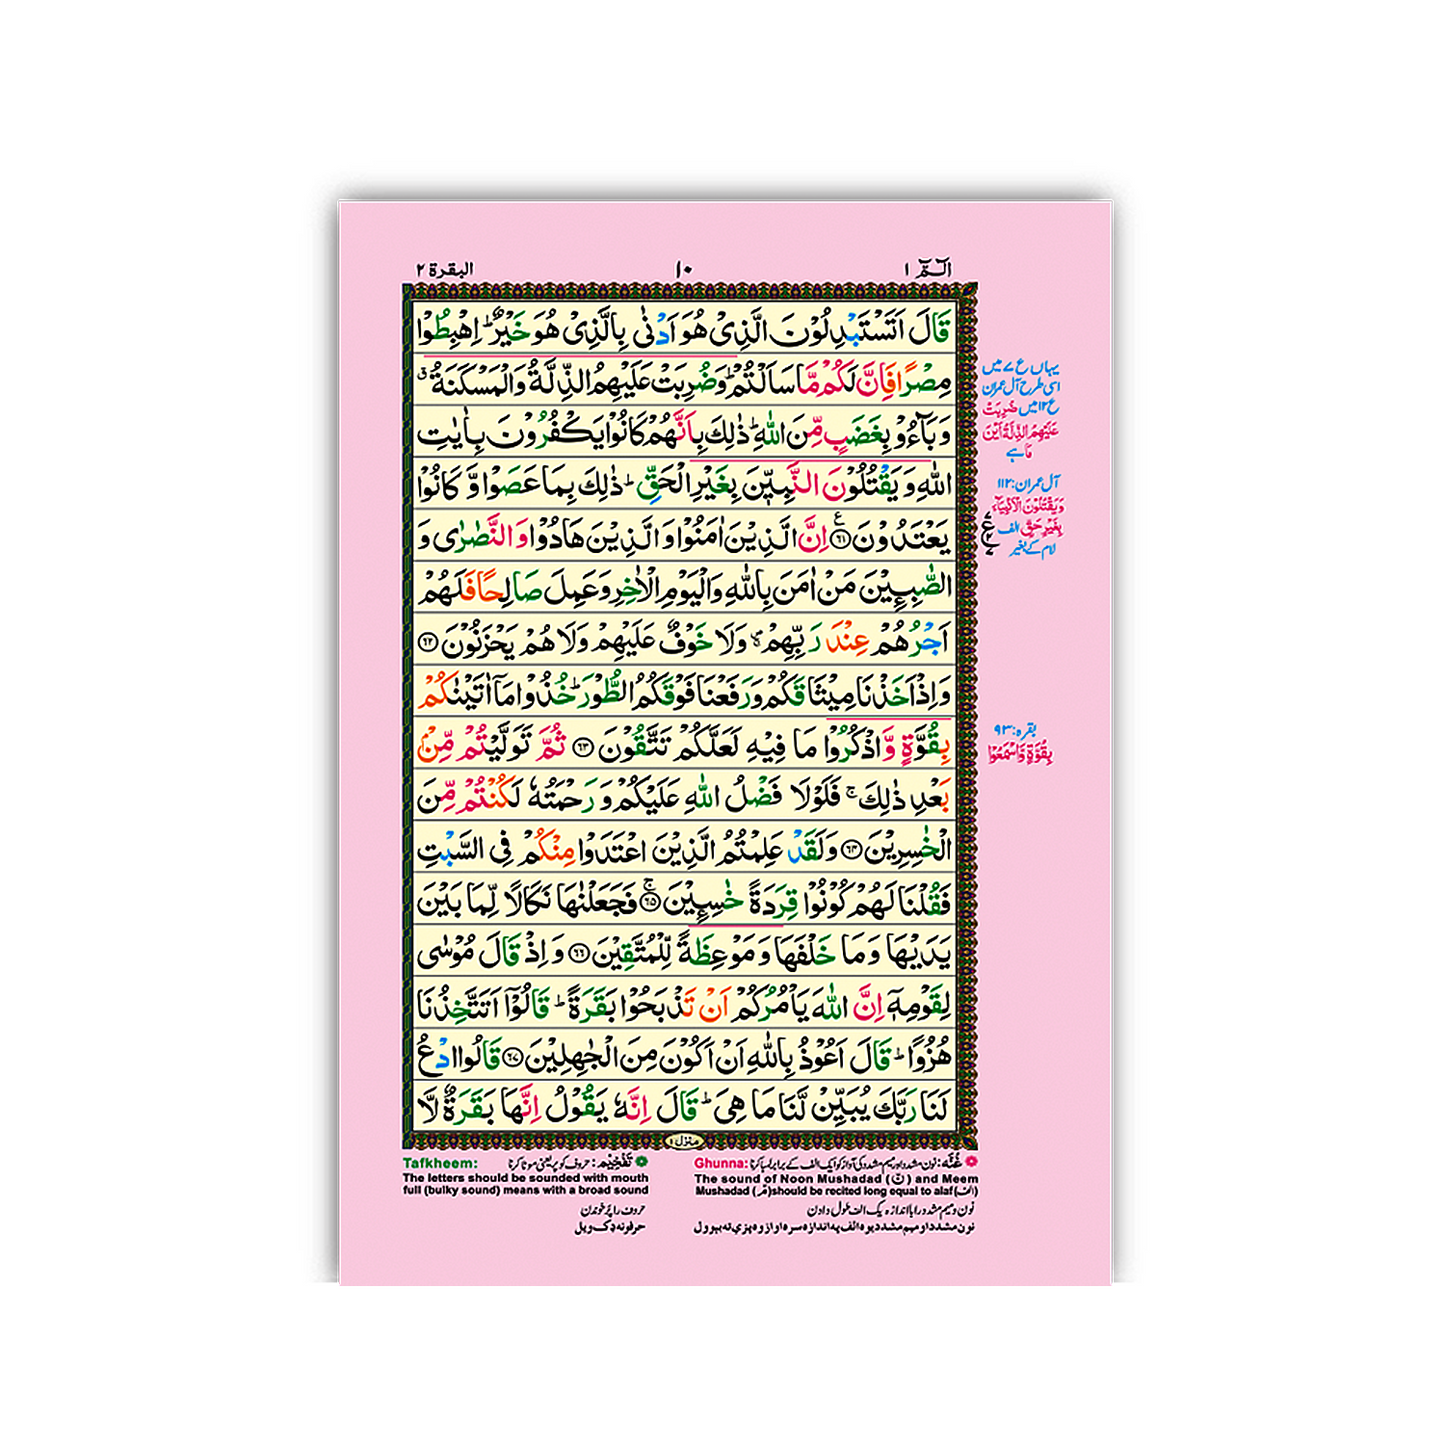 الٓمّٓ ١
١٠
البقرة ٢
قَالَ اَتَسْتَبْدِلُوْنَ الَّذِىْ هُوَ اَدْنٰى بِالَّذِىْ هُوَ خَيْرٌ ؕ اِهْبِطُوْا
مِصْرًا فَاِنَّ لَكُمْ مَّا سَاَلْتُمْ ؕ وَضُرِبَتْ عَلَيْهِمُ الذِّلَّةُ وَالْمَسْكَنَةُ ٘
وَبَآءُوْ بِغَضَبٍ مِّنَ اللّٰهِ ؕ ذٰلِكَ بِاَنَّهُمْ كَانُوْا يَكْفُرُوْنَ بِاٰيٰتِ
اللّٰهِ وَيَقْتُلُوْنَ النَّبِيّٖنَ بِغَيْرِ الْحَقِّ ؕ ذٰلِكَ بِمَا عَصَوْا وَّكَانُوْا
يَعْتَدُوْنَ ۝٦١ اِنَّ الَّذِيْنَ اٰمَنُوْا وَالَّذِيْنَ هَادُوْا وَالنَّصٰرٰى وَ
الصّٰبِـِٕيْنَ مَنْ اٰمَنَ بِاللّٰهِ وَالْيَوْمِ الْاٰخِرِ وَعَمِلَ صَالِحًا فَلَهُمْ
اَجْرُهُمْ عِنْدَ رَبِّهِمْ ۚ وَلَا خَوْفٌ عَلَيْهِمْ وَلَا هُمْ يَحْزَنُوْنَ ۝٦٢
وَاِذْ اَخَذْنَا مِيْثَاقَكُمْ وَرَفَعْنَا فَوْقَكُمُ الطُّوْرَ ؕ خُذُوْا مَاۤ اٰتَيْنٰكُمْ
بِقُوَّةٍ وَّاذْكُرُوْا مَا فِيْهِ لَعَلَّكُمْ تَتَّقُوْنَ ۝٦٣ ثُمَّ تَوَلَّيْتُمْ مِّنْۢ
بَعْدِ ذٰلِكَ ۚ فَلَوْلَا فَضْلُ اللّٰهِ عَلَيْكُمْ وَرَحْمَتُهٗ لَكُنْتُمْ مِّنَ
الْخٰسِرِيْنَ ۝٦٤ وَلَقَدْ عَلِمْتُمُ الَّذِيْنَ اعْتَدَوْا مِنْكُمْ فِى السَّبْتِ
فَقُلْنَا لَهُمْ كُوْنُوْا قِرَدَةً خٰسِـِٕيْنَ ۝٦٥ فَجَعَلْنٰهَا نَكَالًا لِّمَا بَيْنَ
يَدَيْهَا وَمَا خَلْفَهَا وَمَوْعِظَةً لِّلْمُتَّقِيْنَ ۝٦٦ وَاِذْ قَالَ مُوْسٰى
لِقَوْمِهٖۤ اِنَّ اللّٰهَ يَاْمُرُكُمْ اَنْ تَذْبَحُوْا بَقَرَةً ؕ قَالُوْۤا اَتَتَّخِذُنَا
هُزُوًا ؕ قَالَ اَعُوْذُ بِاللّٰهِ اَنْ اَكُوْنَ مِنَ الْجٰهِلِيْنَ ۝٦٧ قَالُوا ادْعُ
لَنَا رَبَّكَ يُبَيِّنْ لَّنَا مَا هِىَ ؕ قَالَ اِنَّهٗ يَقُوْلُ اِنَّهَا بَقَرَةٌ لَّا
منزل ١
یہاں ع ۷ میں
اسی طرح آل عمران
ع ۱۲ میں ضُرِبَتْ
عَلَيْهِمُ الذِّلَّةُ اَيْنَ
مَا ہے
آل عمران: ۱۱۲
وَيَقْتُلُوْنَ الْاَنْۢبِيَآءَ
بِغَيْرِ حَقٍّ الف
لام کے بغیر
بقرہ: ۹۳
بِقُوَّةٍ وَّاسْمَعُوْا
غُنّه: نون مشدد اور میم مشدد کی آواز کو ایک الف کے برابر لمبا کرنا Ghunna:
The sound of Noon Mushadad (نّ) and Meem
Mushadad (مّ) should be recited long equal to alaf (الف)
نون و میم مشدد را با اندازه یک الف طول دادن
نون مشدد او میم مشدد یوه الف په اندازه سره اواز وه پزې ته بېوول
تَفْخِيْم: حروف کو پر یعنی موٹا کرنا Tafkheem:
The letters should be sounded with mouth
full (bulky sound) means with a broad sound
حروف را پر خوندن
حرفونه ډک ویل